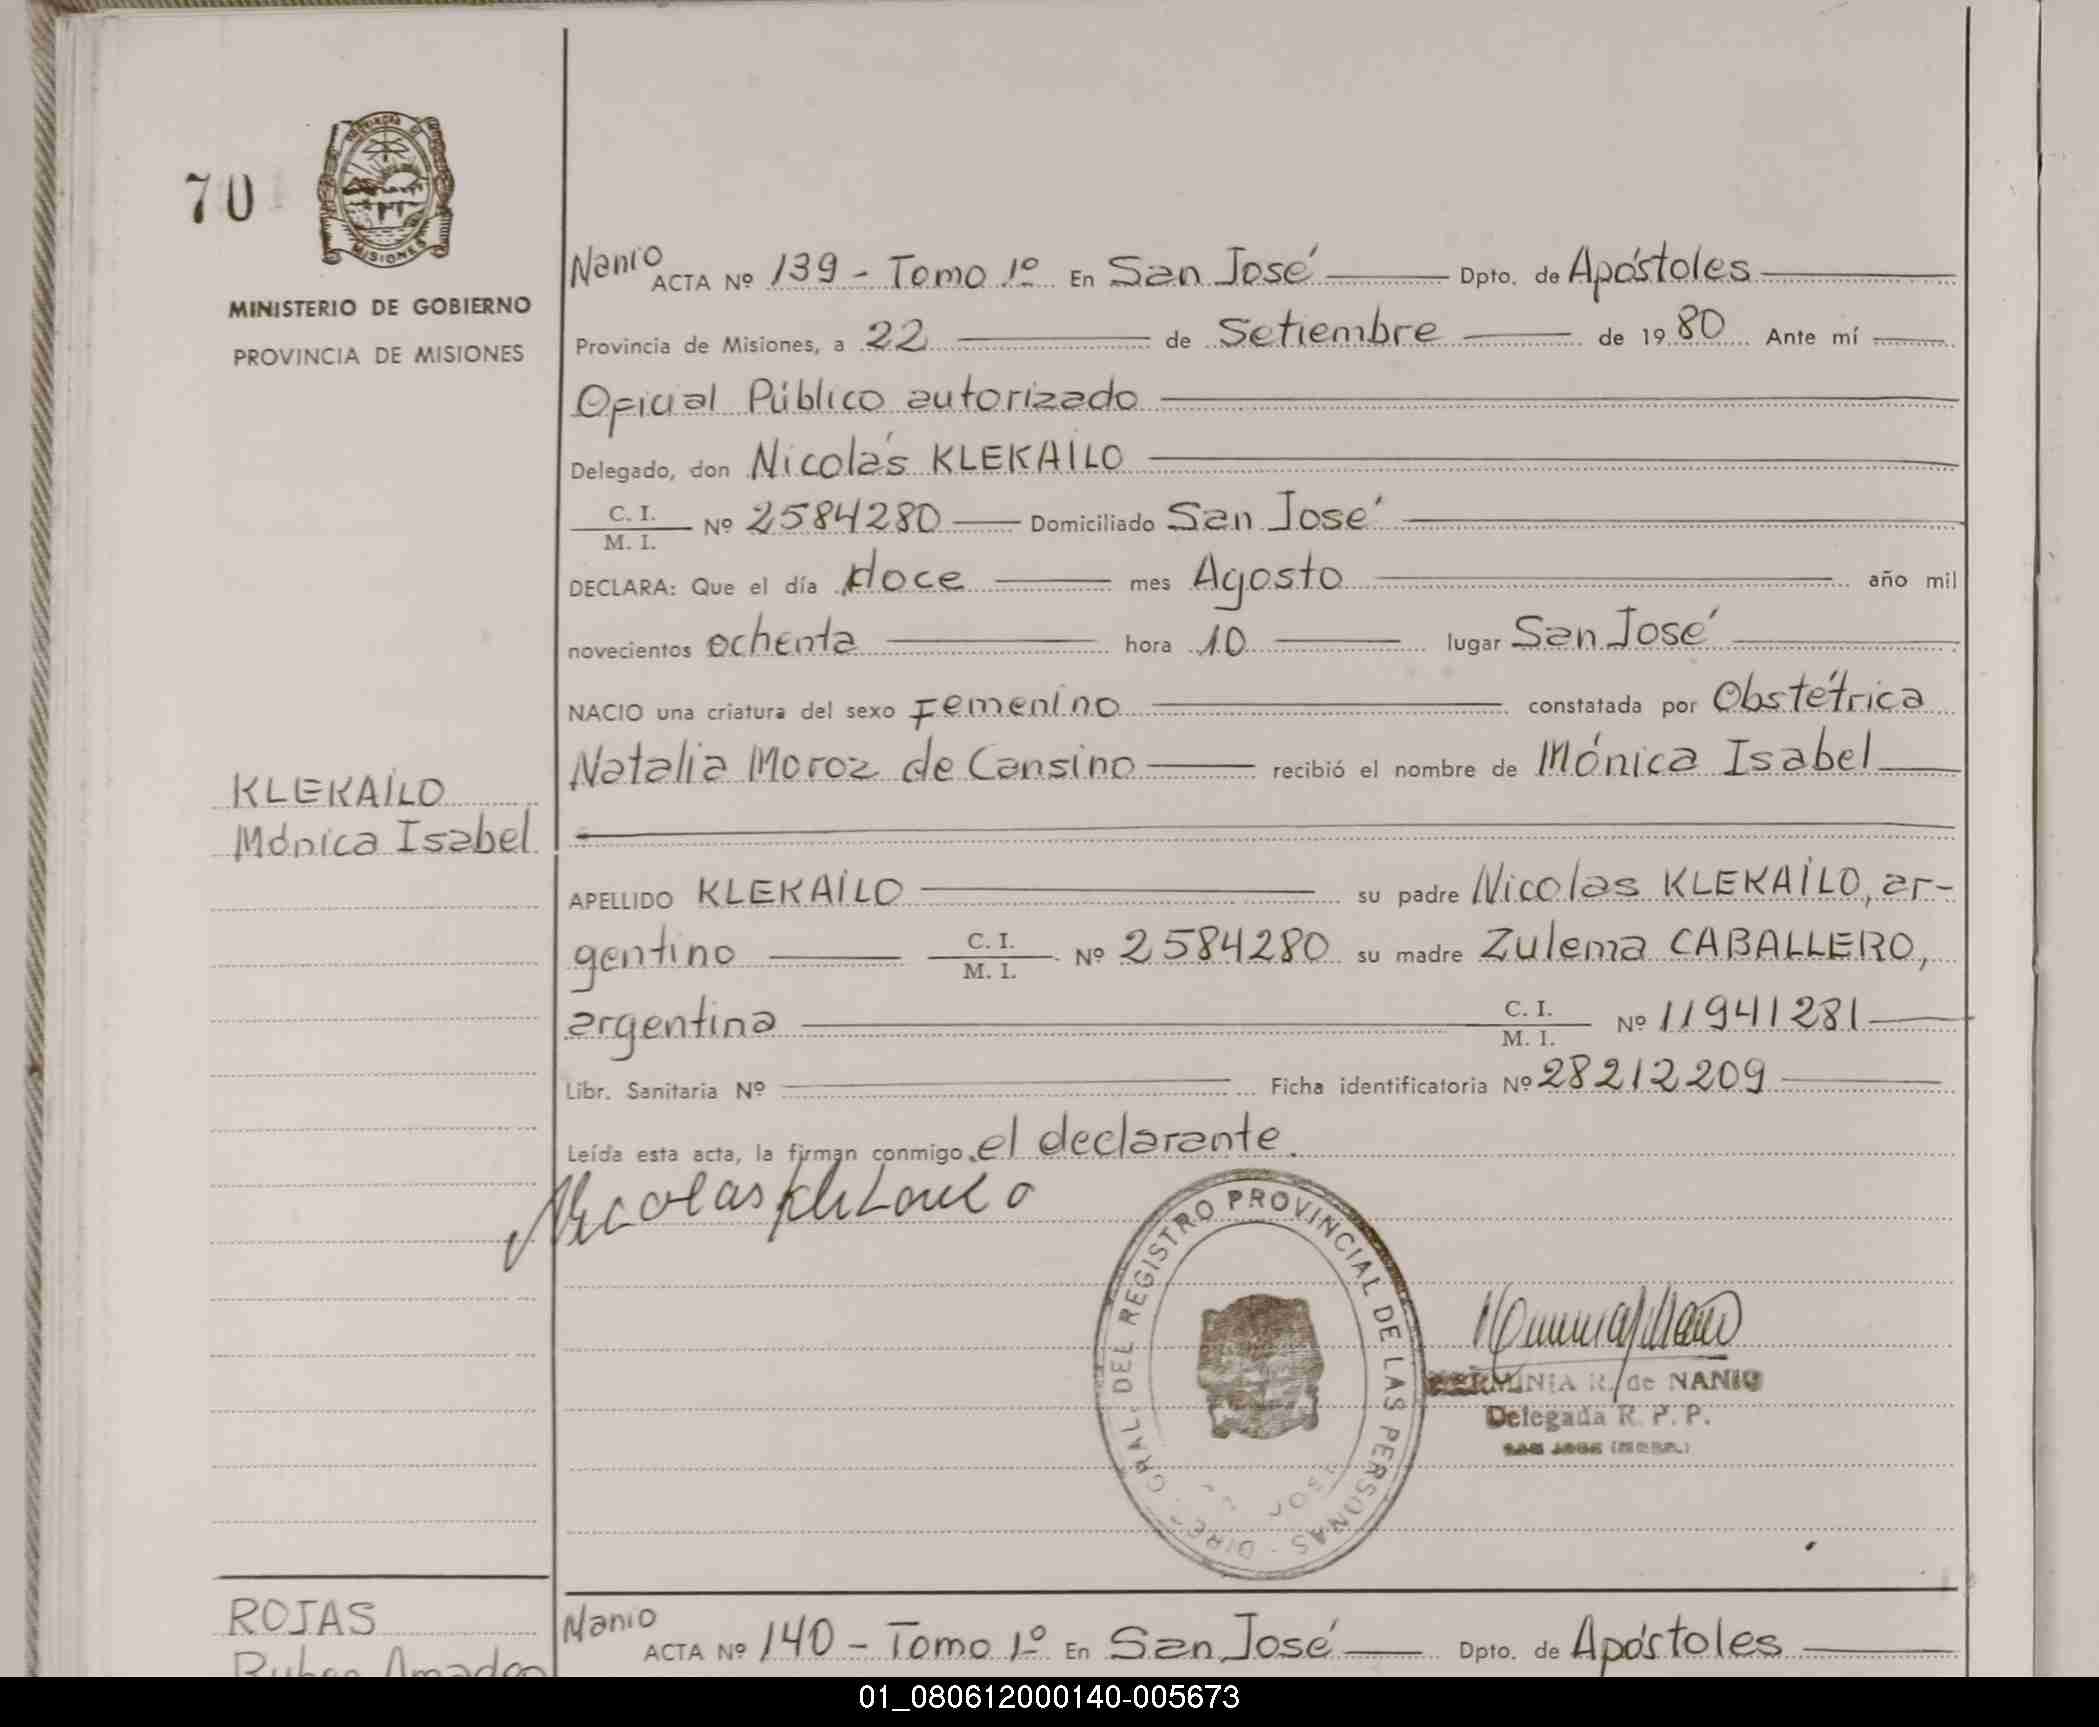 70
PROVINCIA DE
MISIONES
MINISTERIO DE GOBIERNO
PROVINCIA DE MISIONES
KLEKAILO
Mónica Isabel
Nanio
ACTA Nº 139 - Tomo 1º En San José Dpto. de Apóstoles
Provincia de Misiones, a 22 de Setiembre de 1980 Ante mí
Oficial Público autorizado
Delegado, don Nicolás KLEKAILO
C. I.
M. I. Nº 2584280 Domiciliado San José
DECLARA: Que el día doce mes Agosto año mil
novecientos ochenta hora 10 lugar San José
NACIO una criatura del sexo Femenino constatada por Obstétrica
Natalia Moroz de Cansino recibió el nombre de Mónica Isabel
APELLIDO KLEKAILO su padre Nicolas KLEKAILO, ar-
gentino C. I. M. I. Nº 2584280 su madre Zulema CABALLERO,
argentina C. I. M. I. Nº 11941281
Libr. Sanitaria Nº Ficha identificatoria Nº 28212209
Leída esta acta, la firman conmigo el declarante.
DIREC. GRAL. DEL REGISTRO PROVINCIAL DE LAS PERSONAS
R. de NANIO
Delegada R. P. P.
ROJAS
Nanio
ACTA Nº 140 - Tomo 1º En San José Dpto. de Apóstoles
01_080612000140-005673